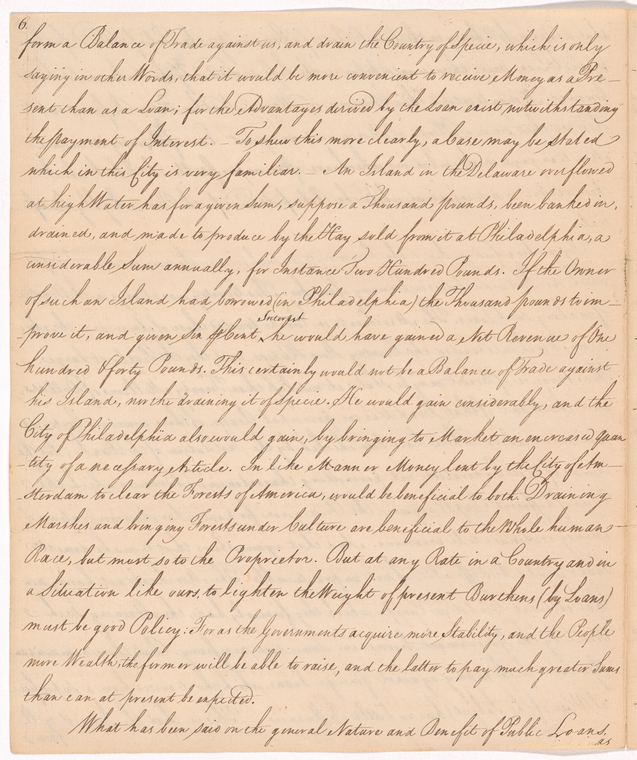 6.
form a Balance of Trade against us, and drain the Country of Specie, which is only
saying in other Words, that it would be more convenient to receive Money as a Pre-
sent than as a Loan; for the Advantages derived by the Loan exist, notwithstanding
the payment of Interest. – To shew this more clearly, a Case may be stated
which in this City is very familiar. – An Island in the Delaware overflowed
at high Water has for a given Sum, suppose a Thousand pounds, been banked in,
drained, and made to produce by the Hay sold from it at Philadelphia, a
considerable Sum annually, for Instance Two Hundred Pounds. If the Owner
of such an Island had borrowed (in Philadelphia) the Thousand pounds to im-
prove it, and given Six P Cent Interest, he would have gained a Net Revenue of One
hundred & forty Pounds. This certainly would not be a Balance of Trade against
his Island, nor the draining it of Specie. He would gain considerably, and the
City of Philadelphia also would gain, by bringing to Market an encreased quan
-tity of a necessary Article. In like Manner Money lent by the City of Am-
-sterdam to clear the Forests of America, would be beneficial to both. Draining
Marshes and bringing Forests under Culture are beneficial to the Whole human
Race, but most so to the Proprietor. But at any Rate in a Country and in
a Situation like ours, to lighten the Weight of present Burthens (by Loans)
must be good Policy: For as the Governments acquire more Stability, and the People
more Wealth, the former will be able to raise, and the latter to pay much greater Sums
than can at present be expected.
What has been said on the general Nature and Benefit of Public Loans,
as